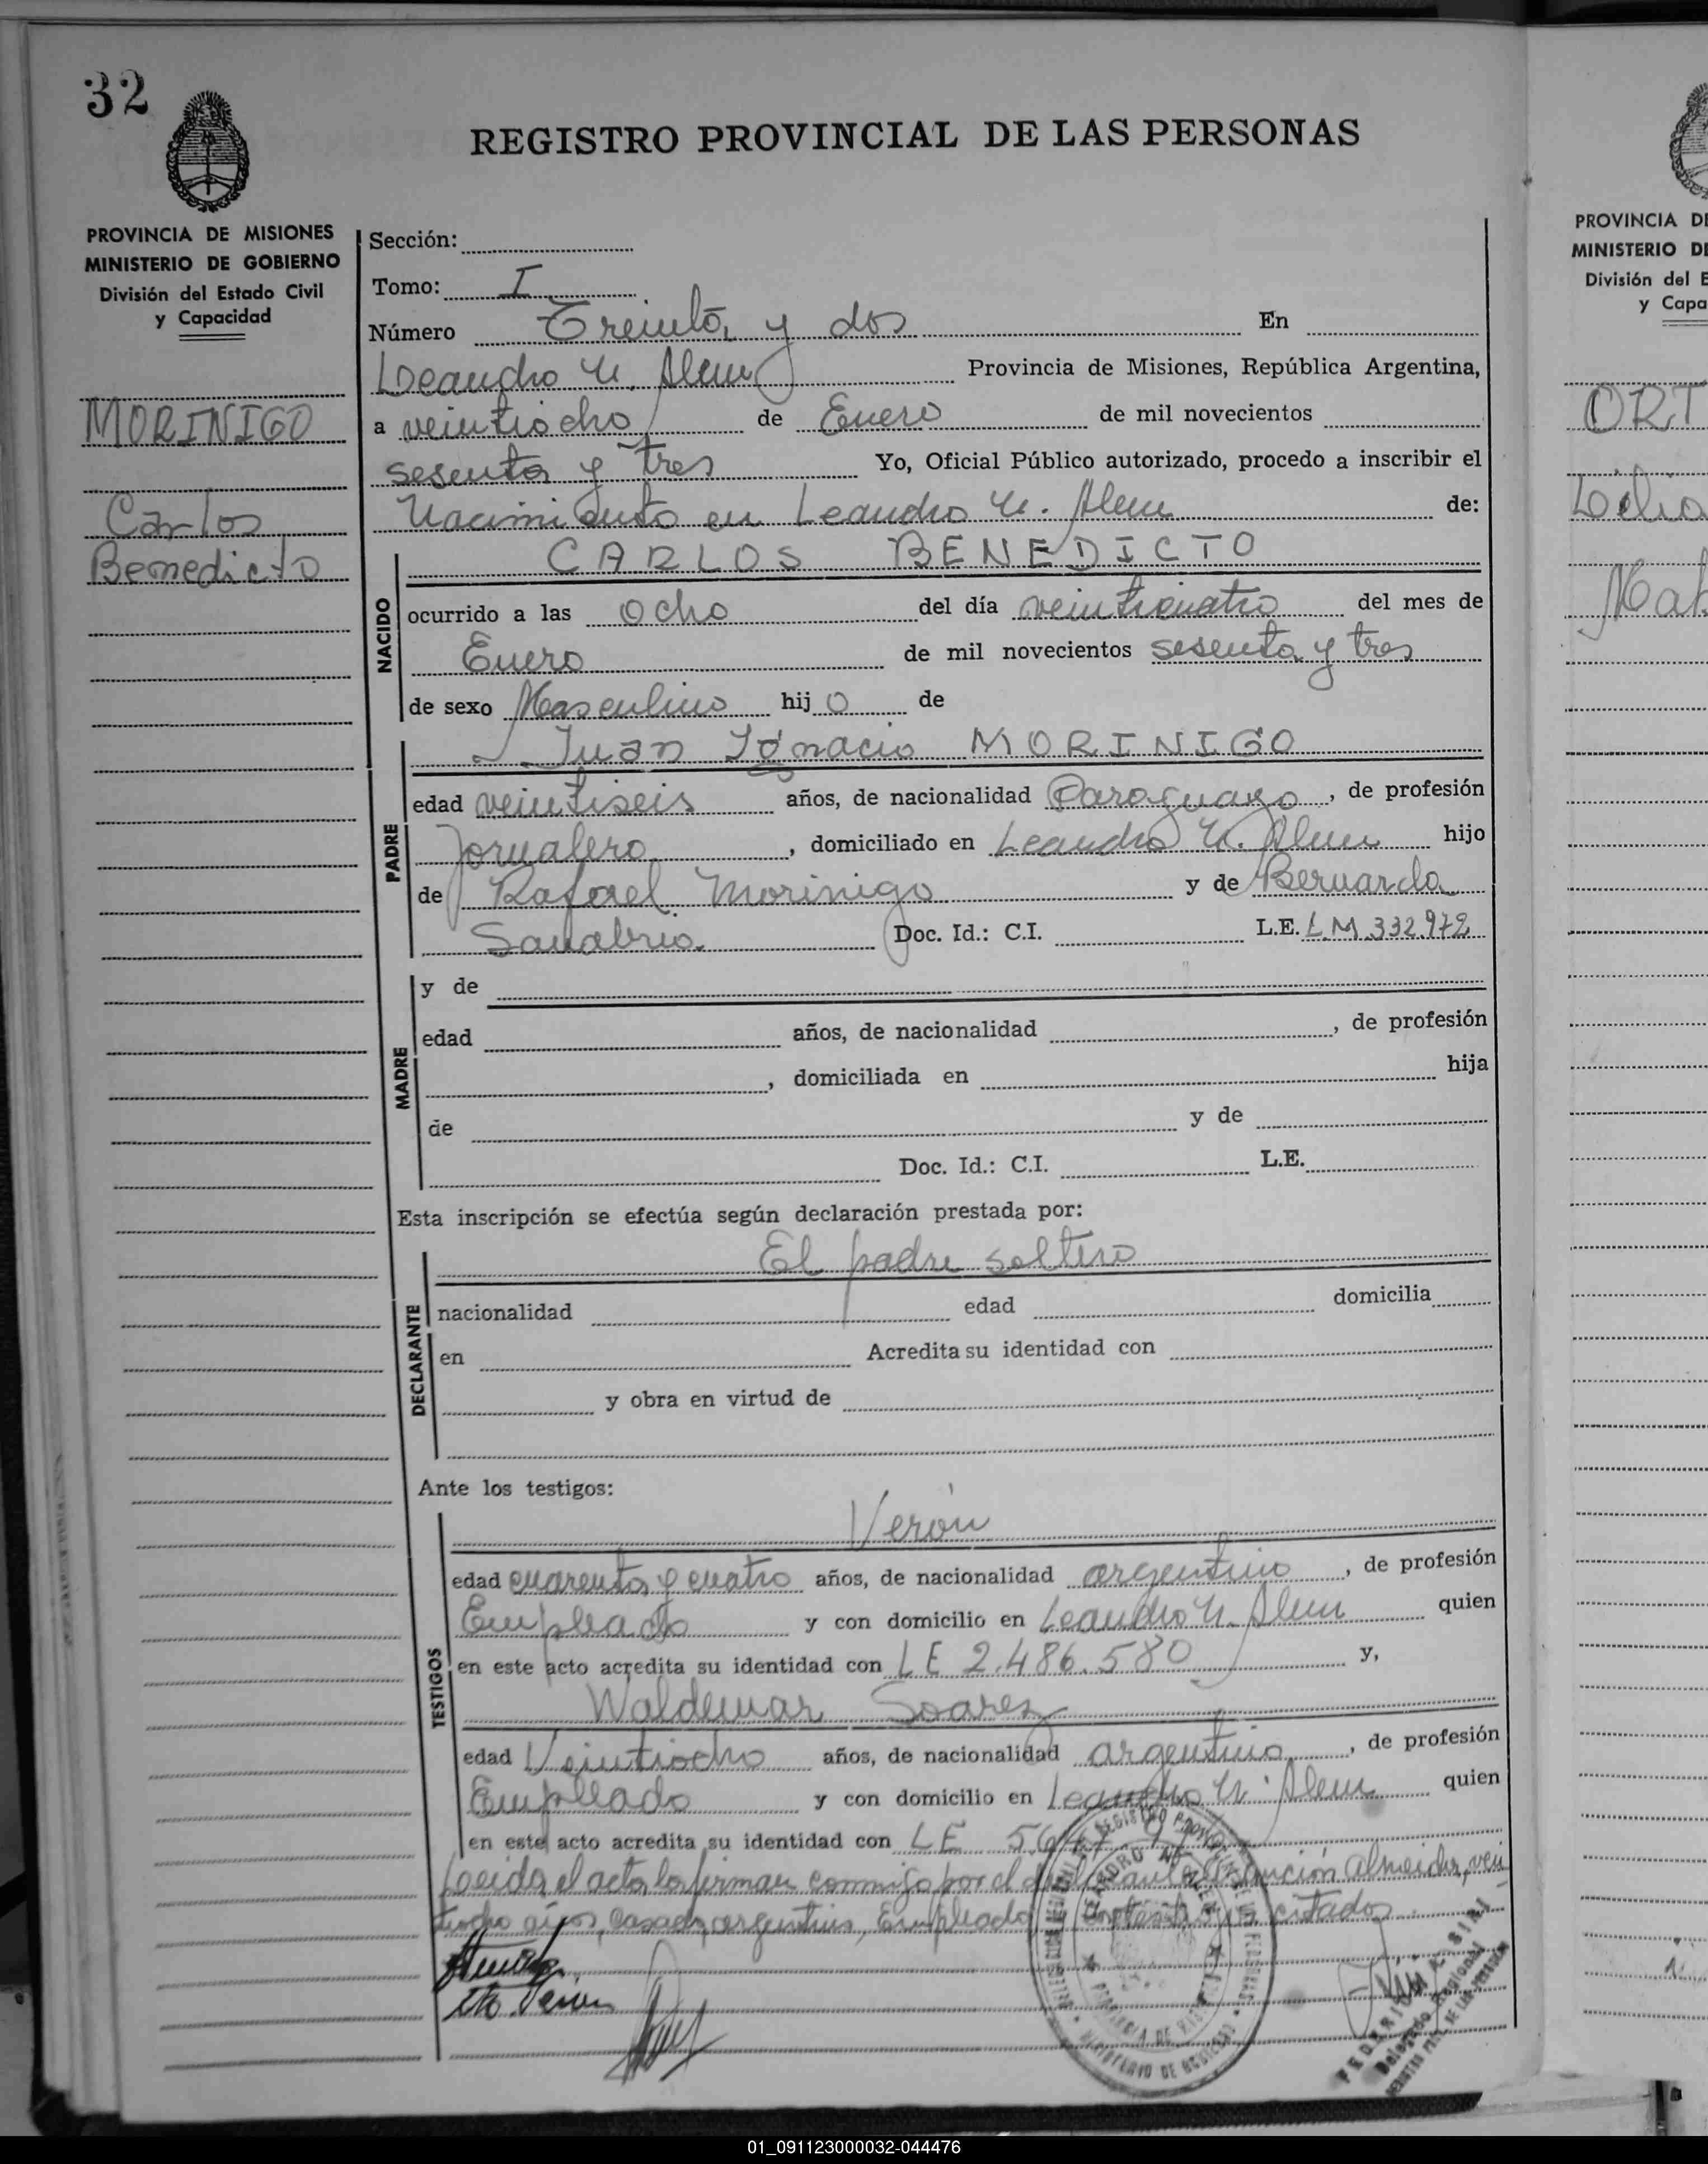 32
REGISTRO PROVINCIAL DE LAS PERSONAS
PROVINCIA DE MISIONES
MINISTERIO DE GOBIERNO
División del Estado Civil
y Capacidad
MORINIGO
Carlos
Benedicto
Sección:
Tomo: I
Número Treinta y dos En
Leandro N. Alem Provincia de Misiones, República Argentina,
a veintiocho de Enero de mil novecientos
sesenta y tres Yo, Oficial Público autorizado, procedo a inscribir el
Nacimiento en Leandro N. Alem de:
CARLOS BENEDICTO
NACIDO
ocurrido a las ocho del día veinticuatro del mes de
Enero de mil novecientos sesenta y tres
de sexo Masculino hijo de
Juan Ignacio MORINIGO
PADRE
edad veintiseis años, de nacionalidad Paraguayo, de profesión
Jornalero, domiciliado en Leandro N. Alem hijo
de Rafael Morinigo y de Bernarda
Sanabria. Doc. Id.: C.I. L.E. L.M 332.972
MADRE
y de
edad años, de nacionalidad , de profesión
, domiciliada en hija
de y de
Doc. Id.: C.I. L.E.
Esta inscripción se efectúa según declaración prestada por:
El padre soltero
DECLARANTE
nacionalidad edad domicilia
en Acredita su identidad con
y obra en virtud de
Ante los testigos:
Verón
TESTIGOS
edad cuarenta y cuatro años, de nacionalidad argentino, de profesión
Empleado y con domicilio en Leandro N. Alem quien
en este acto acredita su identidad con LE 2.486.580 y,
Waldemar Soarez
edad Veintiocho años, de nacionalidad argentino, de profesión
Empleado y con domicilio en Leandro N. Alem quien
en este acto acredita su identidad con LE
Leida el acta, la firman conmigo por el Asunción Almeida, vein
tiocho años, casado, argentino, Empleado citados.
Delegado Regional
PROVINCIA DE
MINISTERIO DE
División del E
y Capa
ORT
01_091123000032-044476